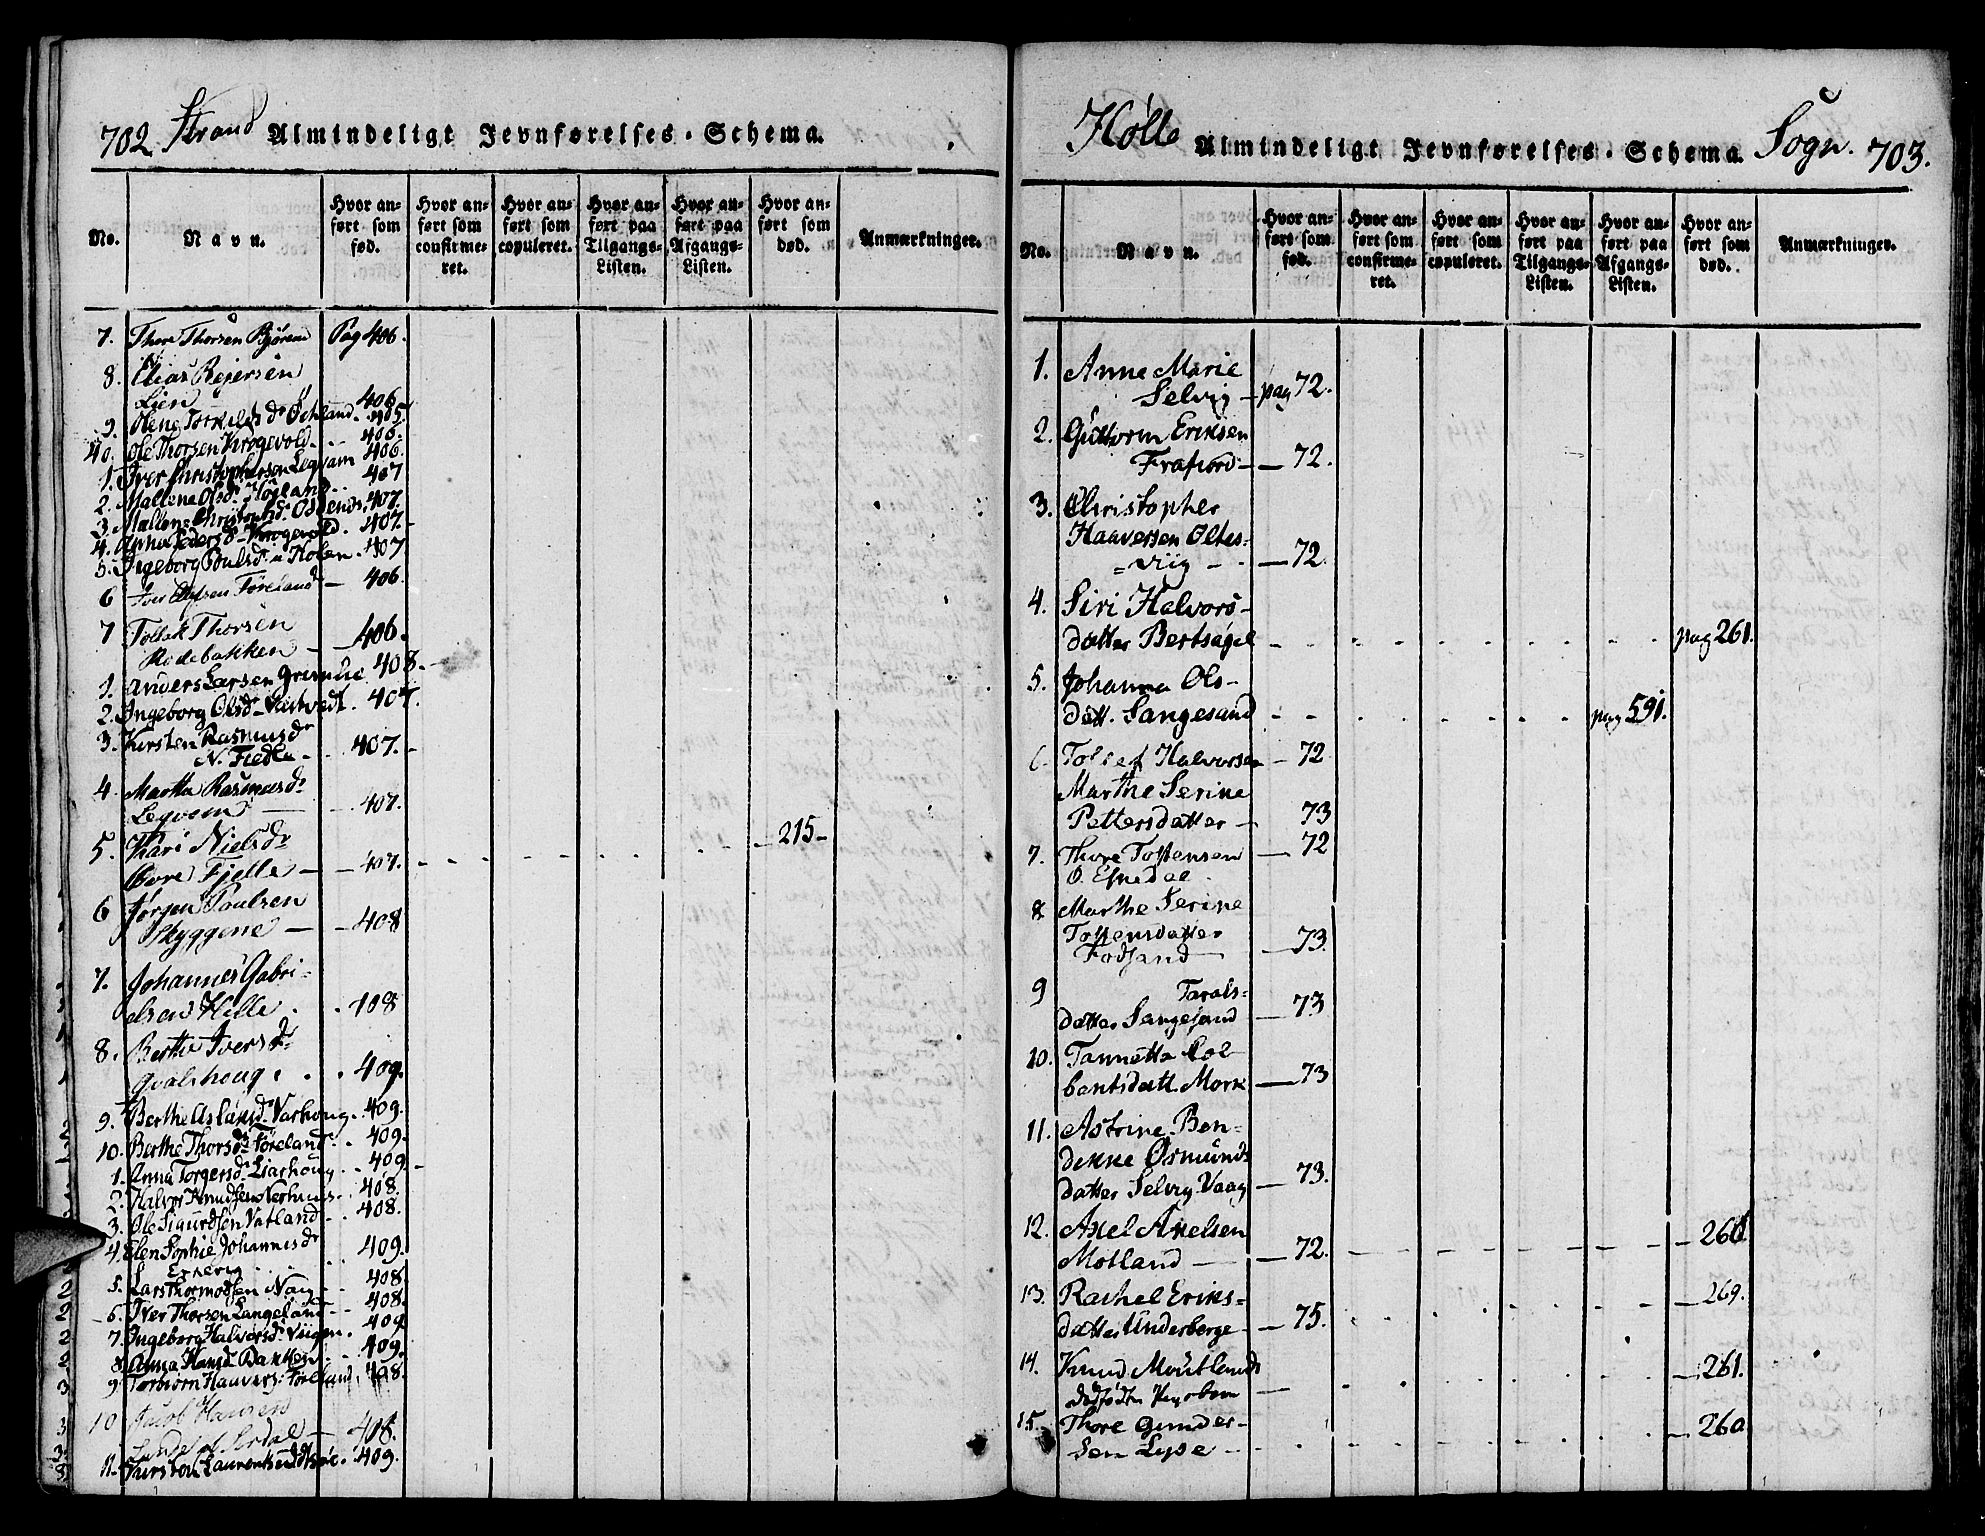 702 Strand Almindeligt Jevnførelses-Schema.
No.
Navn.
Hvor anført som fød.
Hvor anført som confirmeret.
Hvor anført som copuleret.
Hvor anført paa Tilgangs-Listen.
Hvor anført paa Afgangs-Listen.
Hvor anført som død.
Anmærkninger.
7. Thore Thorsen Pag 406.
8. Elias Rejersen
Lien 406
9. 405.
40. Ole Thorsen Krogevold 406.
1. Iver Christophersen Legvam 406.
2. Mallene Olsdr. Høyland 407
3. Mallene 407.
4. Anna Pedersdr. Krogevold. 407.
5. Ingeborg Poulsd. Holen. 407
6 Iver Førland 406.
7 Tollak Thorsen
Rodebakken 406.
1. Anders Larsen 408.
2. Ingeborg Olsdr. 407.
3. Kirsten Rasmusdr
N. 407.
4. Martha Rasmusdr
Legvam 407.
5. Kari Nielsdr 215
Øvre Fjelle 407.
6 Jørgen Poulsen
Skyggene 408
7. Johannes Gabri=
elsen Helle 408
8. Berthe Iversdr
409.
9. Berthe Varhoug. 409.
10. Berthe Thorsdr. Førland. 409.
1. Anna Torgersdr. Liarhoug 409
2. Halvor Knudsen 408.
3. Ole Sigurdsen Vatland 408.
4. Elen Sophie Johannesdr
409.
5. Lars Thormodsen 408.
6. Iver Thorsen Langeland 408.
7. Ingeborg Halvorsdr. Viigen. 409
8. Anna Hansd. Bakken 409.
9. Torbiørn Haavers. Førland. 408.
10 Jacob Hansen
408.
11. 409.
Hølle Almindeligt Jevnførelses-Schema. Sogn. 703.
No.
Navn.
Hvor anført som fød.
Hvor anført som confirmeret.
Hvor anført som copuleret.
Hvor anført paa Tilgangs-Listen.
Hvor anført paa Afgangs-Listen.
Hvor anført som død.
Anmærkninger.
1. Anne Marie
Selvig pag 72.
2. Guttorm Eriksen
Frafiord 72.
3. Christopher
Haaversen Oltes=
=viig 72.
4. Siri Halvors-
datter Bertsagel pag 261.
5. Johanna Ols-
datt. Sangesand pag 591.
6. Tollef Halvorsen 72
Marthe Serine
Pettersdatter 73
7. Thore Tostensen 72
O. Espedal
8 Marthe Serine
Tostensdatter
Fodsand 73.
9 Tarals=
datter Sangesand 73
10. Tannette Kol-
bentsdatt. Mork 73
11. Astrine Ben-
dekke Osmunds
datter Selvig Vaag 73.
12. Axel Axelsen
Motland 72. 260
13. Rachel Eriks=
datter Underberge 75. 269.
14. Knud Moutlands
dødfødte 261.
15. Thore Gunder-
sen Lyse 260